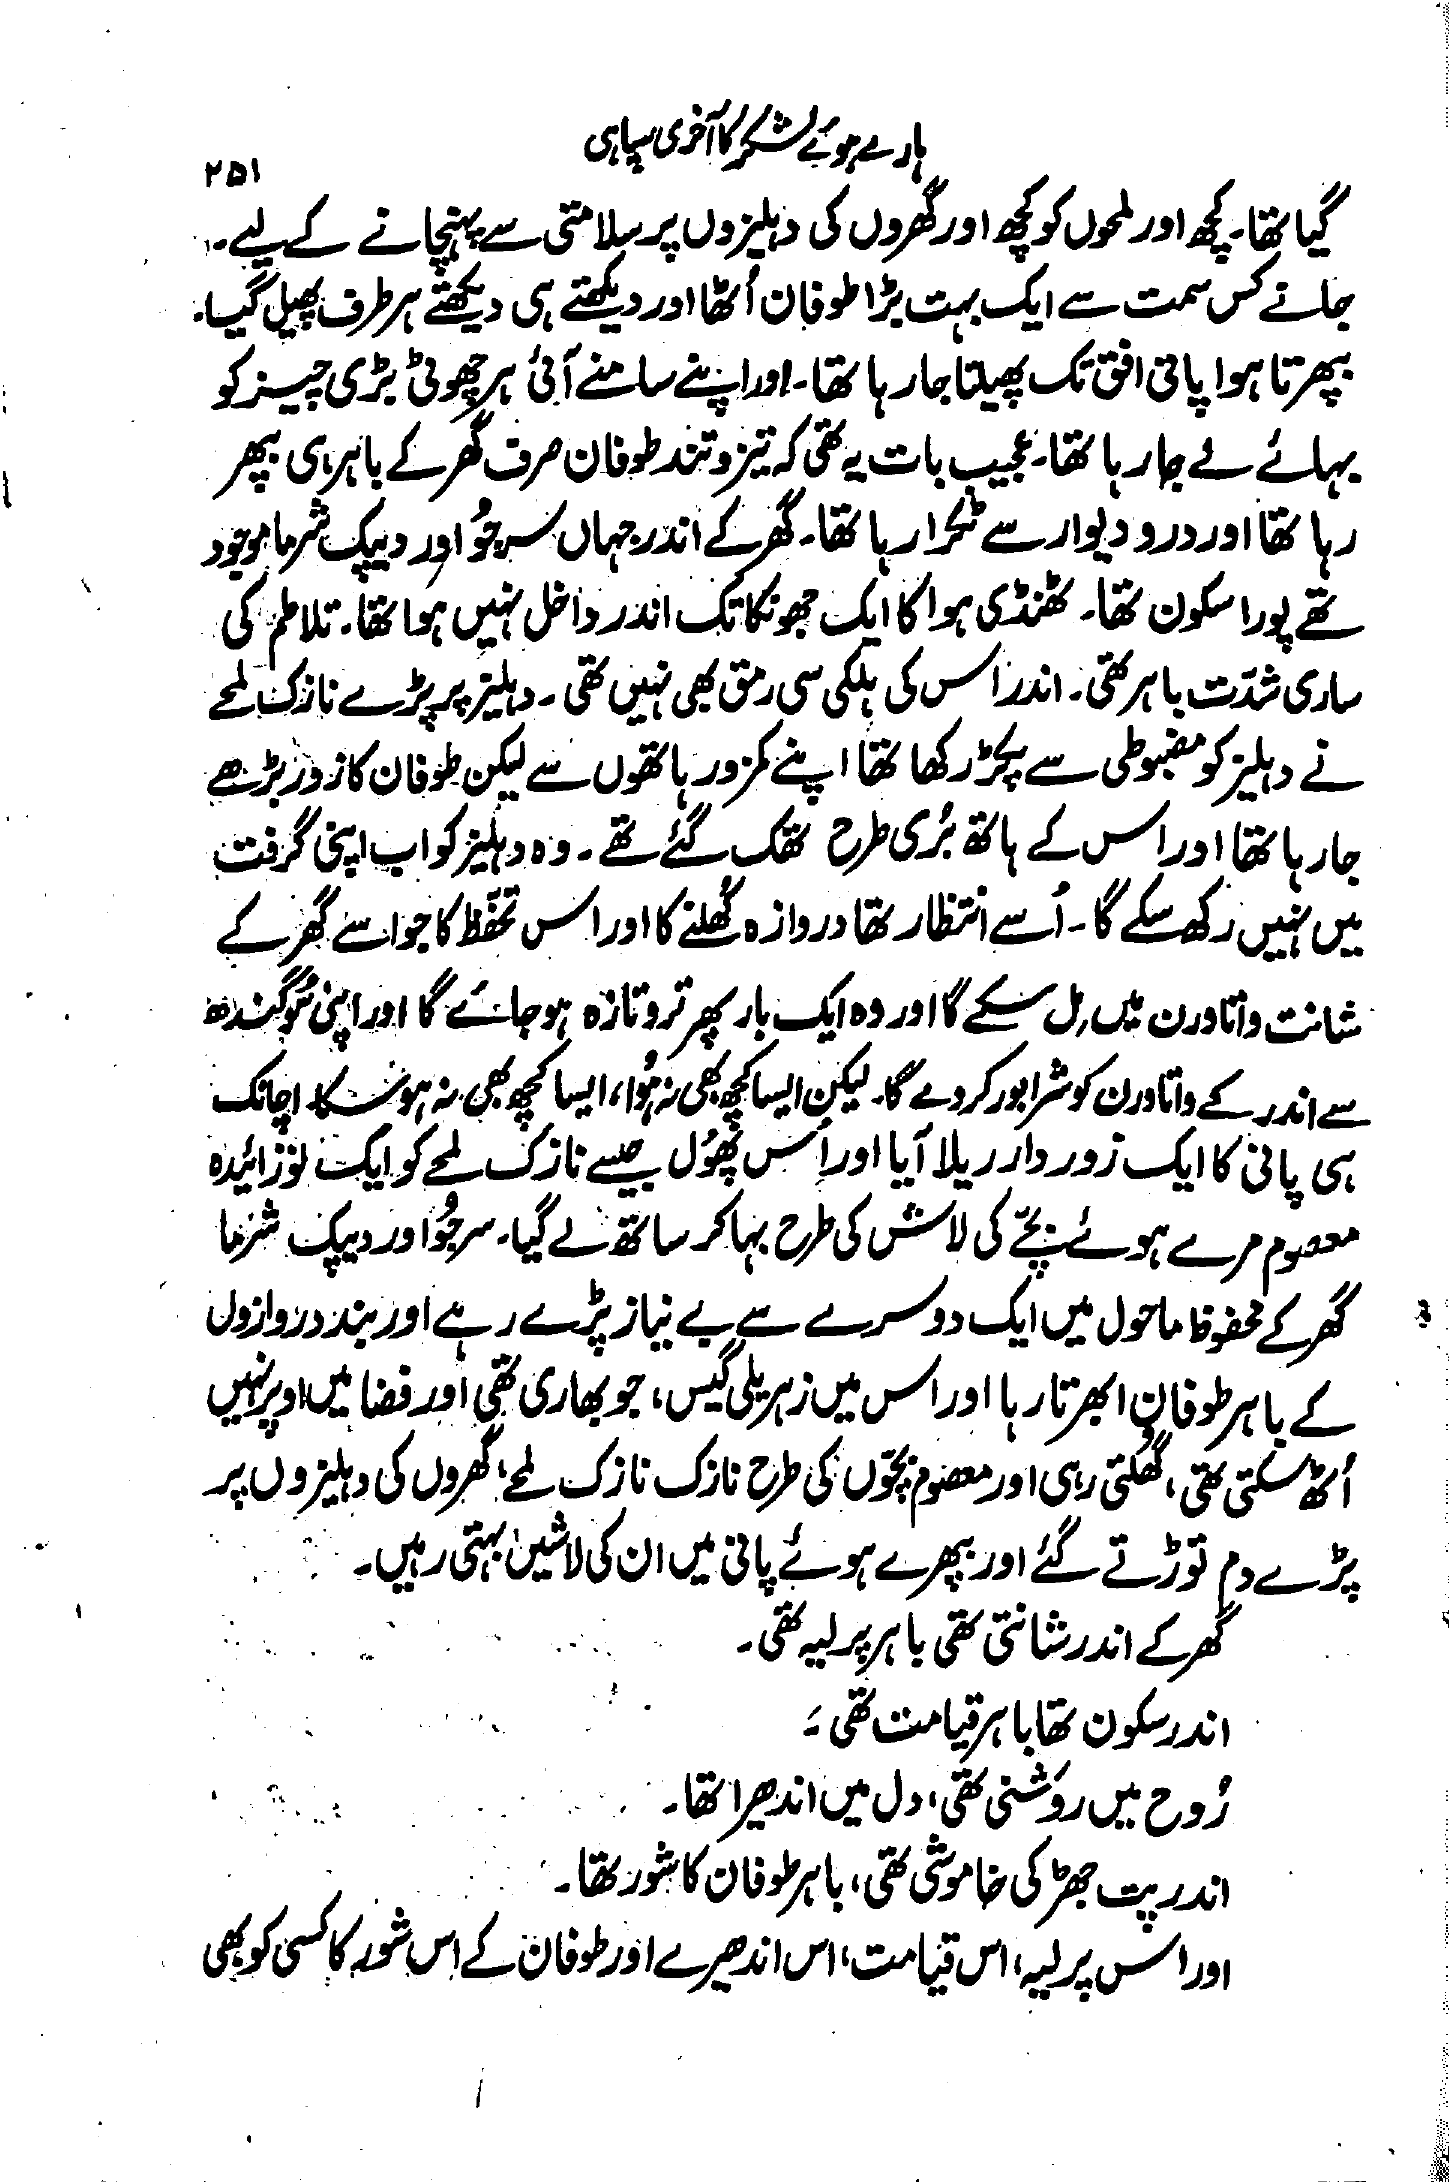 ہارے ہوئے لشکر کا آخری سپاہی
۲۵۱
گیا تھا۔ کچھ اور لمحوں کو کچھ اور گھروں کی دہلیزوں پر سلامتی سے پہنچانے کے لیے۔
جانے کس سمت سے ایک بہت بڑا طوفان اُٹھا اور دیکھتے ہی دیکھتے ہر طرف پھیل گیا۔
بپھرتا ہوا پانی افق تک پھیلتا جا رہا تھا۔ اور اپنے سامنے آئی ہر چھوٹی بڑی چیز کو
بہائے لے جا رہا تھا۔ عجیب بات یہ تھی کہ تیز و تند طوفان صرف گھر کے باہر ہی بپھر
رہا تھا اور در و دیوار سے ٹکرا رہا تھا۔ گھر کے اندر جہاں سرجُو اور دیپک شرما موجود
تھے پورا سکون تھا۔ ٹھنڈی ہوا کا ایک جھونکا تک اندر داخل نہیں ہوا تھا۔ تلاطم کی
ساری شدّت باہر تھی۔ اندر اس کی ہلکی سی رمق بھی نہیں تھی۔ دہلیز پر پڑے نازک لمحے
نے دہلیز کو مضبوطی سے پکڑ رکھا تھا اپنے کمزور ہاتھوں سے لیکن طوفان کا زور بڑھے
جا رہا تھا اور اس کے ہاتھ بُری طرح تھک گئے تھے۔ وہ دہلیز کو اب اپنی گرفت
میں نہیں رکھ سکے گا۔ اُسے انتظار تھا دروازہ کُھلنے کا اور اس تحفّظ کا جو اسے گھر کے
شانت واتاورن میں مِل سکے گا اور وہ ایک بار پھر تر و تازہ ہو جائے گا اور اپنی سُوگندھ
سے اندر کے واتاورن کو شرابور کر دے گا۔ لیکن ایسا کچھ بھی نہ ہُوا، ایسا کچھ بھی نہ ہو سکا۔ اچانک
ہی پانی کا ایک زور دار ریلا آیا اور اُس پھُول جیسے نازک لمحے کو ایک نوزائیدہ
معصوم مرے ہوئے بچّے کی لاش کی طرح بہا کر ساتھ لے گیا۔ سرجُو اور دیپک شرما
گھر کے محفوظ ماحول میں ایک دوسرے سے بے نیاز پڑے رہے اور بند دروازوں
کے باہر طوفان ابھرتا رہا اور اس میں زہریلی گیس، جو بھاری تھی اور فضا میں اوپر نہیں
اُٹھ سکتی تھی، گھُلتی رہی اور معصوم بچّوں کی طرح نازک نازک لمحے، گھروں کی دہلیزوں پر
پڑے دم توڑتے گئے اور بپھرے ہوئے پانی میں ان کی لاشیں بہتی رہیں۔
گھر کے اندر شانتی تھی باہر پرلیہ تھی۔
اندر سکون تھا باہر قیامت تھی۔
رُوح میں روشنی تھی، دل میں اندھیرا تھا۔
اندر پت جھڑ کی خاموشی تھی، باہر طوفان کا شور تھا۔
اور اس پرلیہ، اس قیامت، اس اندھیرے اور طوفان کے اس شور کا کسی کو بھی